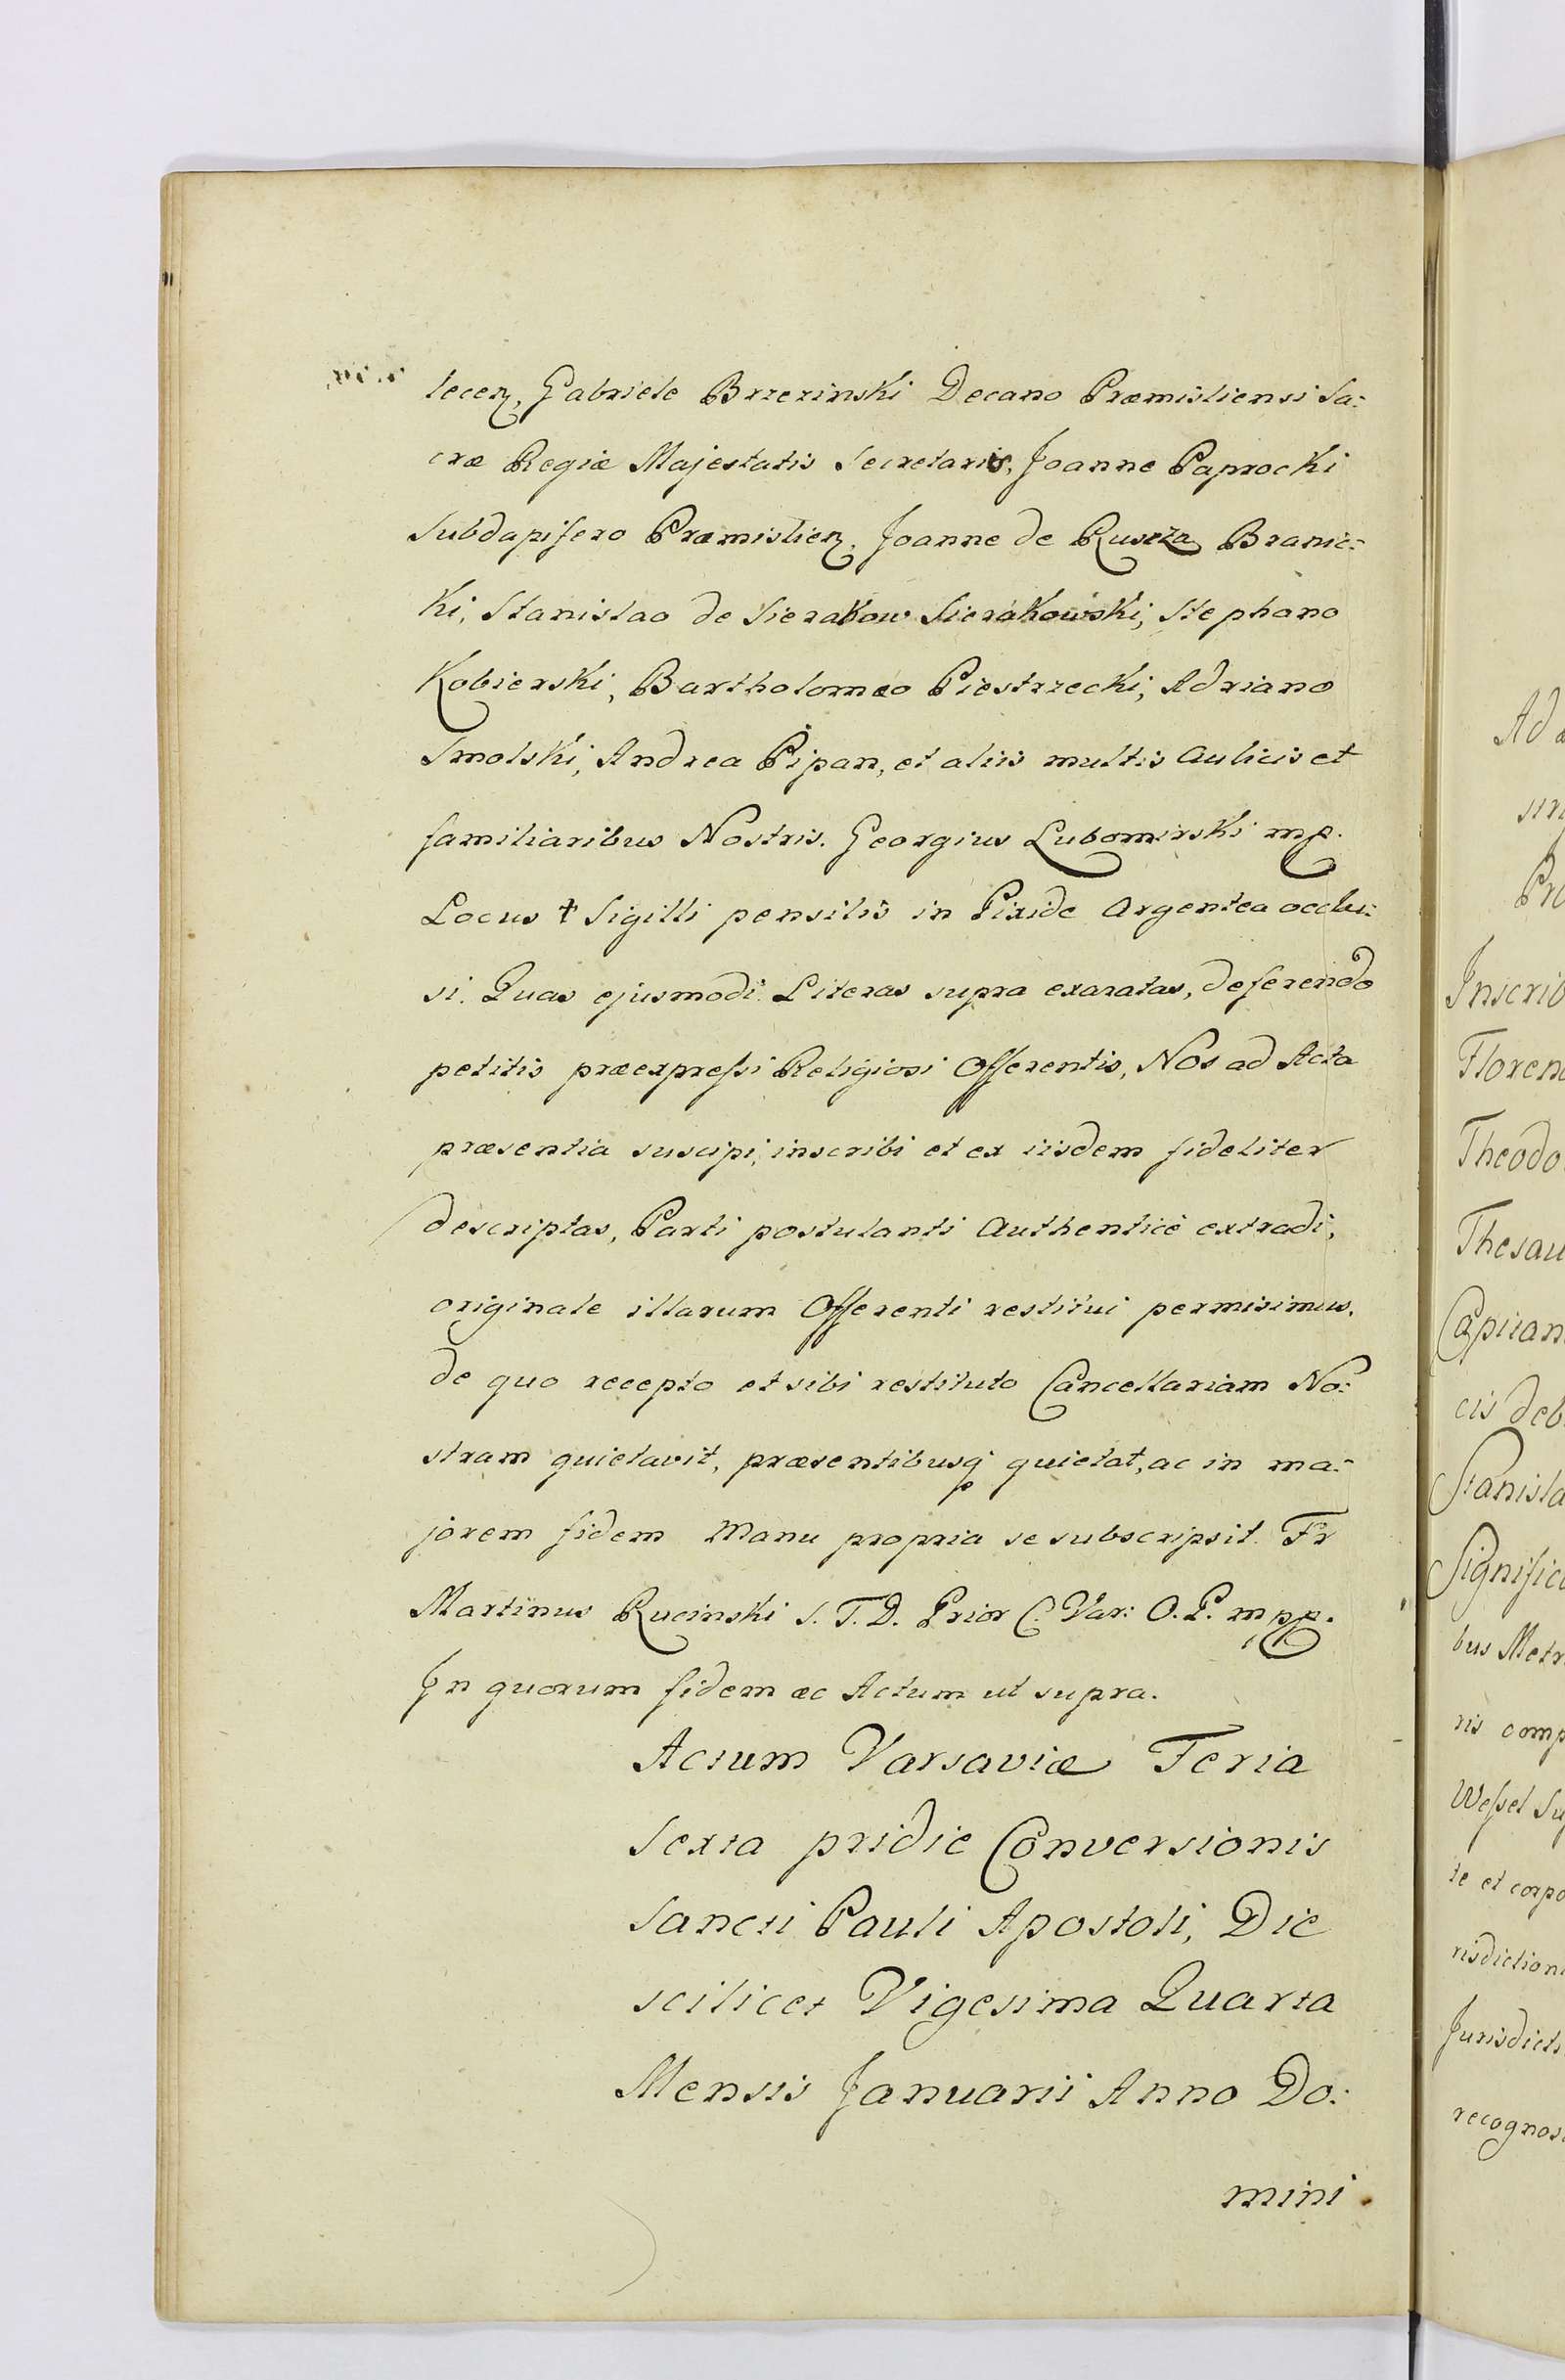 lecen, Gabriele Brzezinski Decano Præmisliensi Sa:
cræ Regiæ Majestatis Secretario, Joanne Paprocki
Subdapifero Præmislien, Joanne de Ruszza Branic:
ki, Stanislao de Sierakow Sierakowski, Stephano
Kobierski, Bartholomæo Piestrzecki, Adriano
Smolski, Andrea Pipan, et aliis multis Aulicis et
familiaribus Nostris. Georgius Lubomirski mp.
Locus ✝ Sigilli pensilis in Pixide Argentea occlu:
si. Quas ejusmodi Literas supra exaratas, deferendo
petitis præexpressi Religiosi Offerentis, Nos ad Acta
præsentia suscipi, inscribi et ex iisdem fideliter
descriptas, Parti postulanti Authenticè extradi,
originale illarum Offerenti restitui permisimus.
de quo recepto et sibi restituto Cancellariam No:
stram quietavit, præsentibusq quietat, ac in ma:
jorem fidem Manu propria se subscripsit. Fr
Martinus Rucinski S. T. D. Prior C. Var: O. P. mpp.
In quorum fidem æc Actum ut supra.
Actum Varsaviæ Feria
Sexta pridie Conversionis
Sancti Pauli Apostoli, Die
scilicet Vigesima Quarta
Mensis Januarii Anno Do:
mini
Ad
Inscrib
Floren
Theodo
Thesau
Capitan
cis deb
Stanisla
Signific
bus Metr
ris comp
Wessel Su
te et corpo
risdictioni
Jurisdicti
recognos